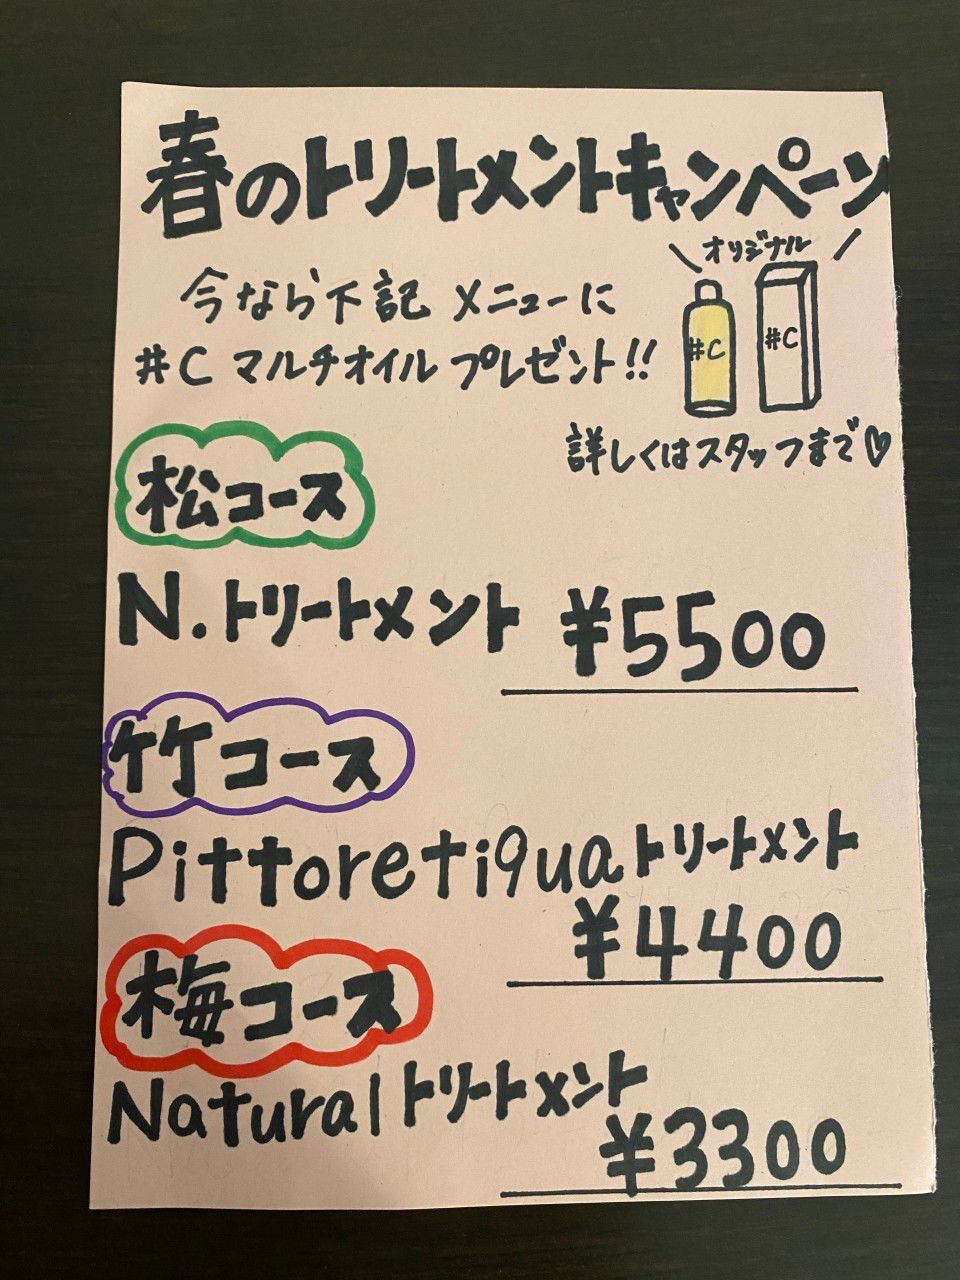 春のトリートメントキャンペーン
\ オリジナル /
今なら下記メニューに
#C マルチオイル プレゼント!!
#C
#C
詳しくはスタッフまで♡
松コース
N.トリートメント ¥5500
竹コース
Pittoretiquaトリートメント
¥4400
梅コース
Naturalトリートメント
¥3300